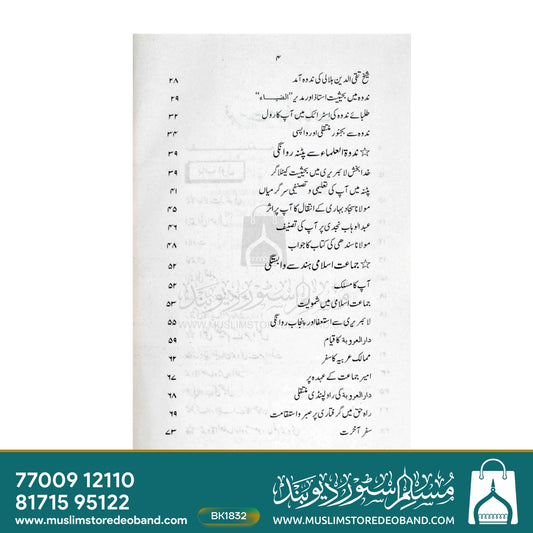 ۴
شیخ تقی الدین ہلالی کی ندوہ آمد ۲۸
ندوہ میں بحیثیت استاذ اور مدیر "الضیاء" ۲۹
طلبائے ندوہ کی اسٹرائک میں آپ کا رول ۳۲
ندوہ سے بجنور منتقلی اور واپسی ۳۴
☆ ندوۃ العلماء سے پٹنہ روانگی ۳۹
خدا بخش لائبریری میں بحیثیت کیٹلاگر ۳۹
پٹنہ میں آپ کی تعلیمی و تصنیفی سرگرمیاں ۴۱
مولانا سجاد بہاری کے انتقال کا آپ پر اثر ۴۵
عبدالوہاب نجدی پر آپ کی تصنیف ۴۶
مولانا سندھی کی کتاب کا جواب ۴۸
☆ جماعت اسلامی ہند سے وابستگی ۵۲
آپ کا مسلک ۵۲
جماعت اسلامی میں شمولیت ۵۳
لائبریری سے استعفا اور پنجاب روانگی ۵۵
دارالعروبۃ کا قیام ۵۹
ممالک عربیہ کا سفر ۶۲
امیر جماعت کے عہدہ پر ۶۷
دارالعروبۃ کی راولپنڈی منتقلی ۶۸
راہ حق میں گرفتاری پر صبر و استقامت ۶۹
سفر آخرت ۷۳
مسلم اسٹور دیوبند
WWW.MUSLIMSTOREDEOBAND.COM
77009 12110
81715 95122
www.muslimstoredeoband.com
BK1832
مسلم اسٹور دیوبند
WWW.MUSLIMSTOREDEOBAND.COM